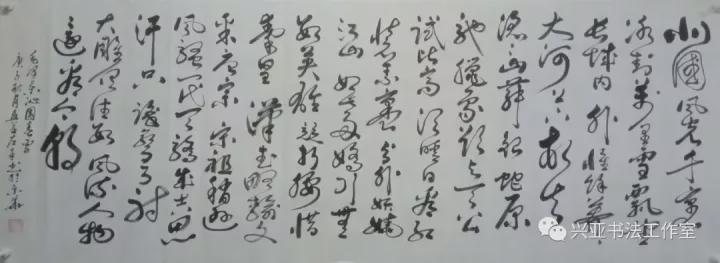 北國風光千里
冰封萬里雪飘望
长城内外惟餘莽莽
大河上下顿失
滔滔山舞銀蛇原
驰腊象欲与天公
试比高须晴日看红
装素裹分外妖娆
江山如此多嬌引無
数英雄竞折腰惜
秦皇漢武略输文
采唐宗宋祖稍逊
风骚一代天骄成吉思
汗只識弯弓射
大雕俱往矣数风流人物
还看今朝
毛泽东沁园春雪
庚子秋月
兴亚书法工作室